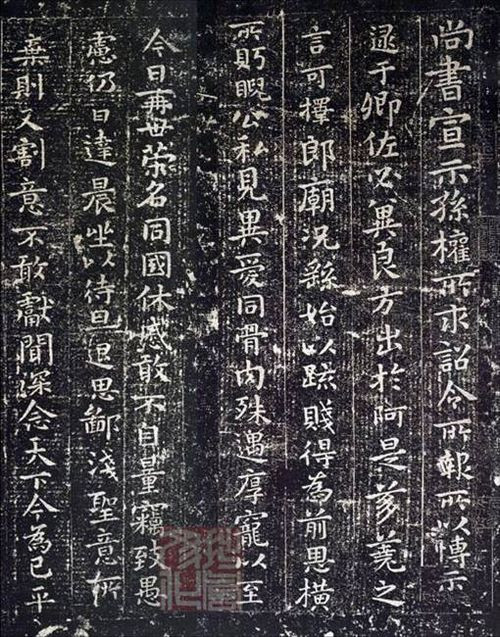 尚書宣示孫權所求詔令所報所以博示
逮于卿佐必冀良方出於阿是芻蕘之
言可擇郎廟況繇始以疏賤得為前恩橫
所眄睨公私見異愛同骨肉殊遇厚寵以至
今日再世荣名同國休慼敢不自量竊致愚
慮仍日達晨坐以待旦退思鄙淺聖意所
棄則又割意不敢獻聞深念天下今為已平